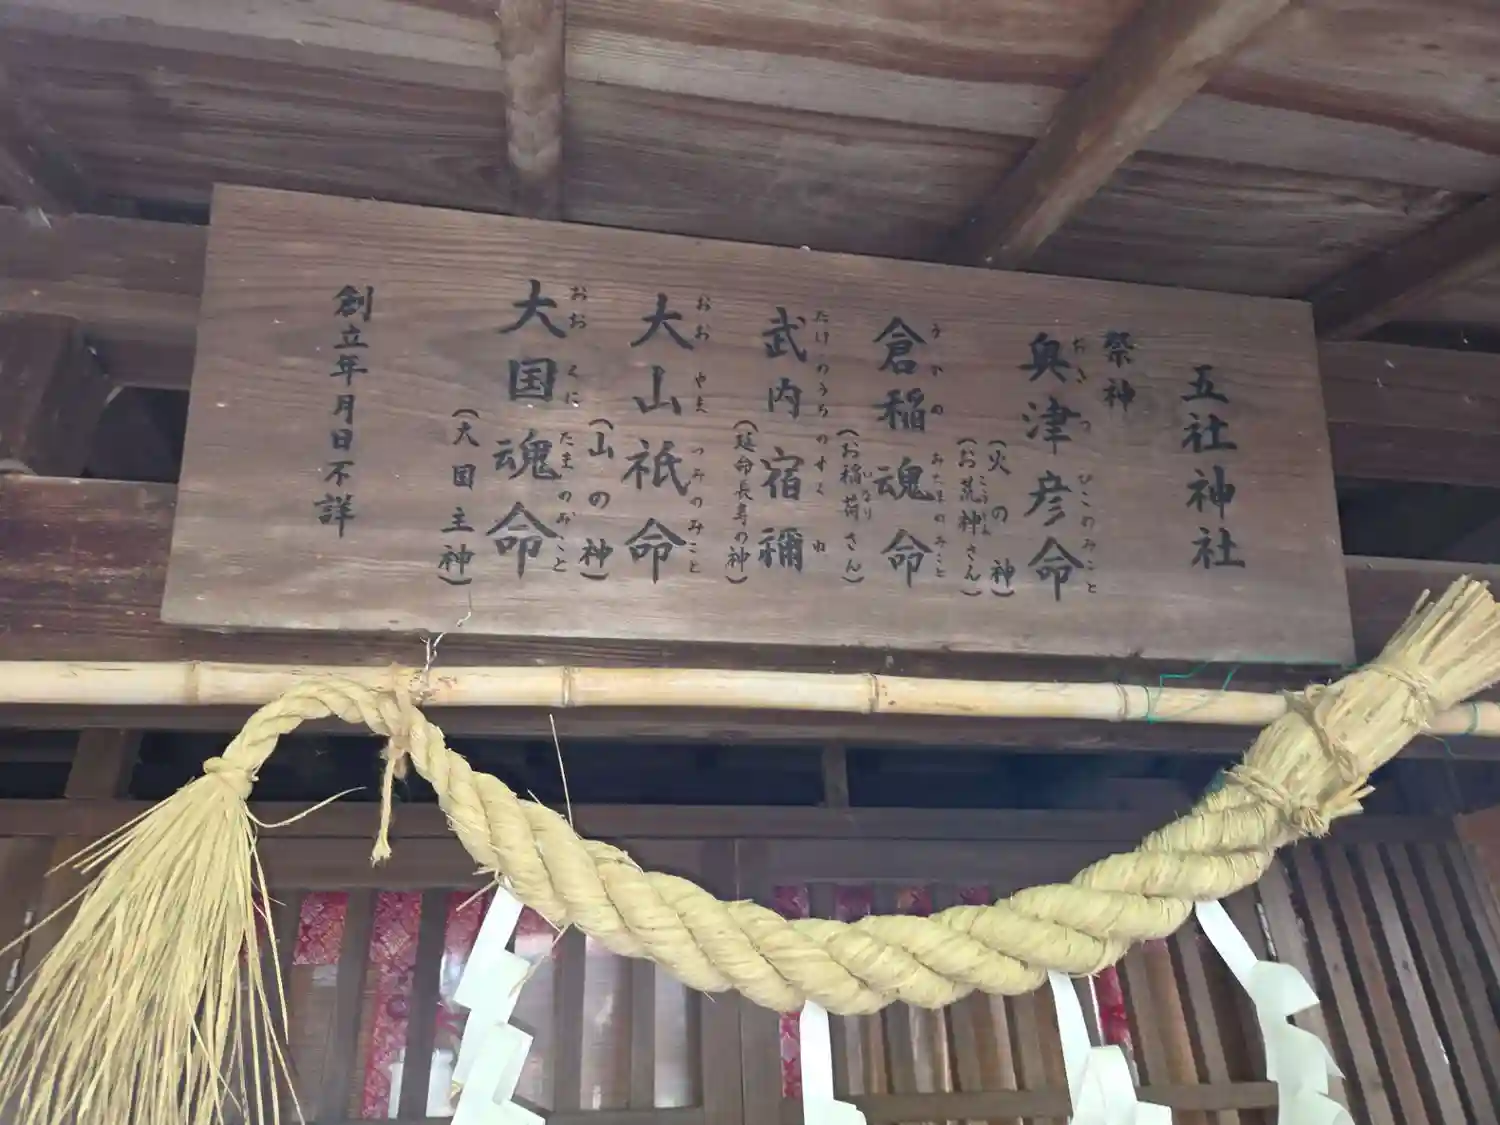 五社神社
祭神
奥津彦命
おきつひこのみこと
(火の神)
(お荒神さん)
こうじん
倉稲魂命
うかのみたまのみこと
(お稲荷さん)
いなり
武内宿禰
たけのうちのすくね
(延命長寿の神)
大山祇命
おおやまつみのみこと
(山の神)
大国魂命
おおくにたまのみこと
(大国主神)
創立年月日不詳